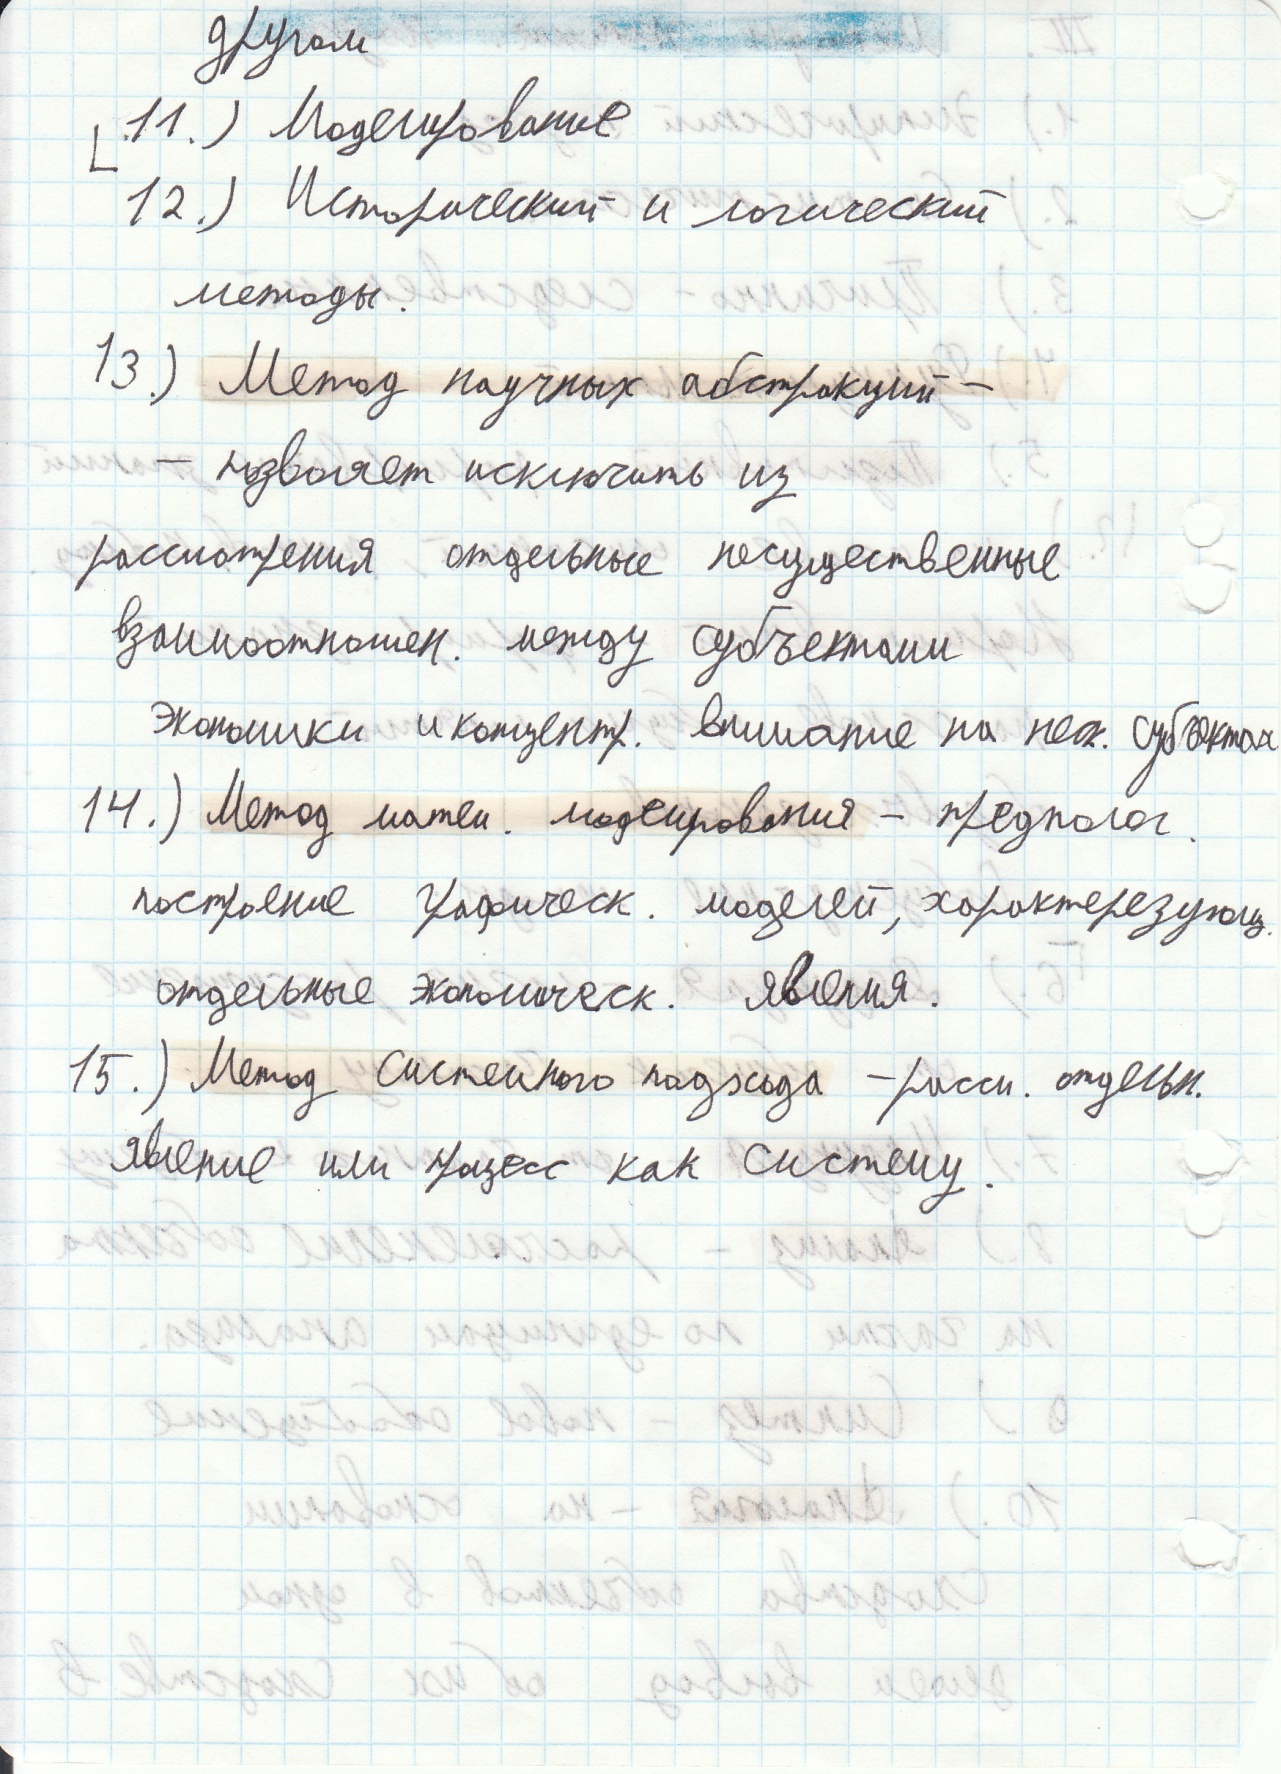 другом
11.) Моделирование
12.) Исторический и логический
методы.
13.) Метод научных абстракций –
– позволяет исключить из
рассмотрения отдельные несущественные
взаимоотношен. между субъектами
экономики и концентр. внимание на неск. субъектах
14.) Метод матем. моделирования – предполог.
построение графическ. моделей, характерезующ.
отдельные экономическ. явления.
15.) Метод системного подхода – рассм. отдельн.
явление или процесс как систему.